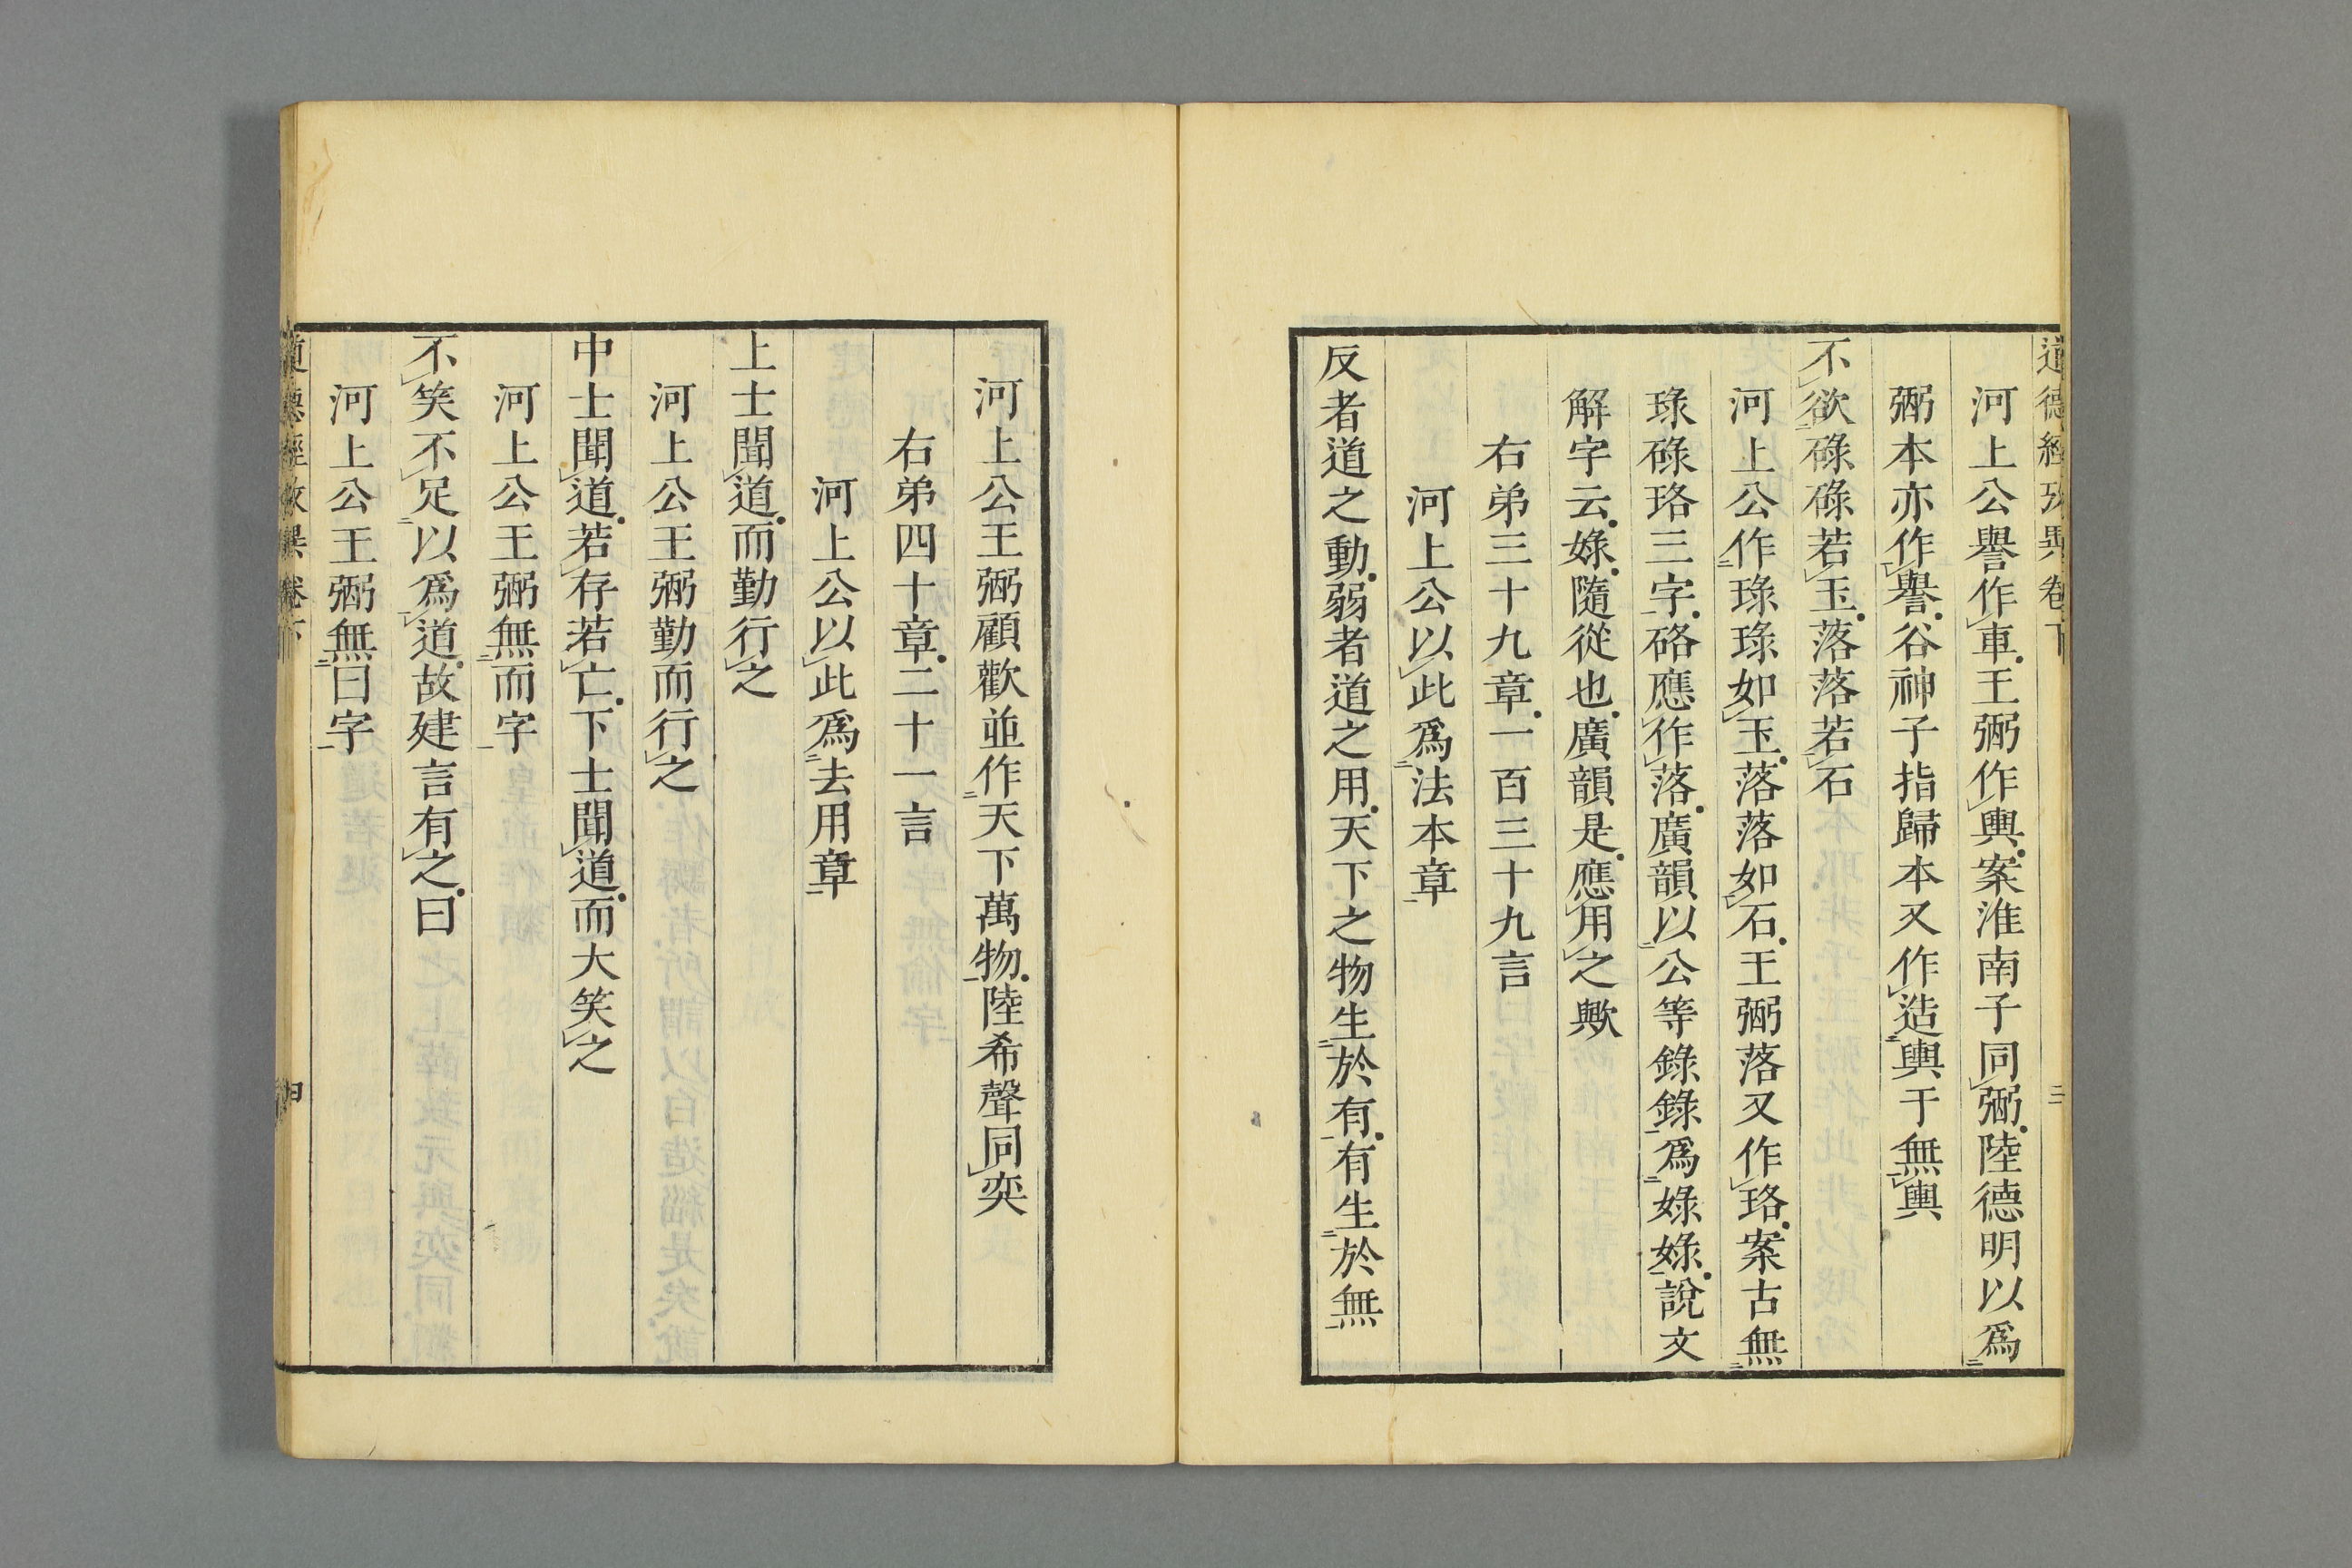 道德經攷異卷下 三
河上公譽作車王弼作輿案淮南子同弼陸德明以爲
弼本亦作譽谷神子指歸本又作造輿于無輿
不欲碌碌若玉落落若石
河上公作琭琭如玉落落如石王弼落又作珞案古無
琭碌珞三字硌應作落廣韻以公等錄錄爲娽娽說文
解字云娽隨從也廣韻是應用之歟
右弟三十九章一百三十九言
河上公以此爲法本章
反者道之動弱者道之用天下之物生於有有生於無
河上公王弼顧歡並作天下萬物陸希聲同奕
右弟四十章二十一言
河上公以此爲去用章
上士聞道而勤行之
河上公王弼勤而行之
中士聞道若存若亡下士聞道而大笑之
河上公王弼無而字
不笑不足以爲道故建言有之曰
河上公王弼無曰字
道德經攷異卷下